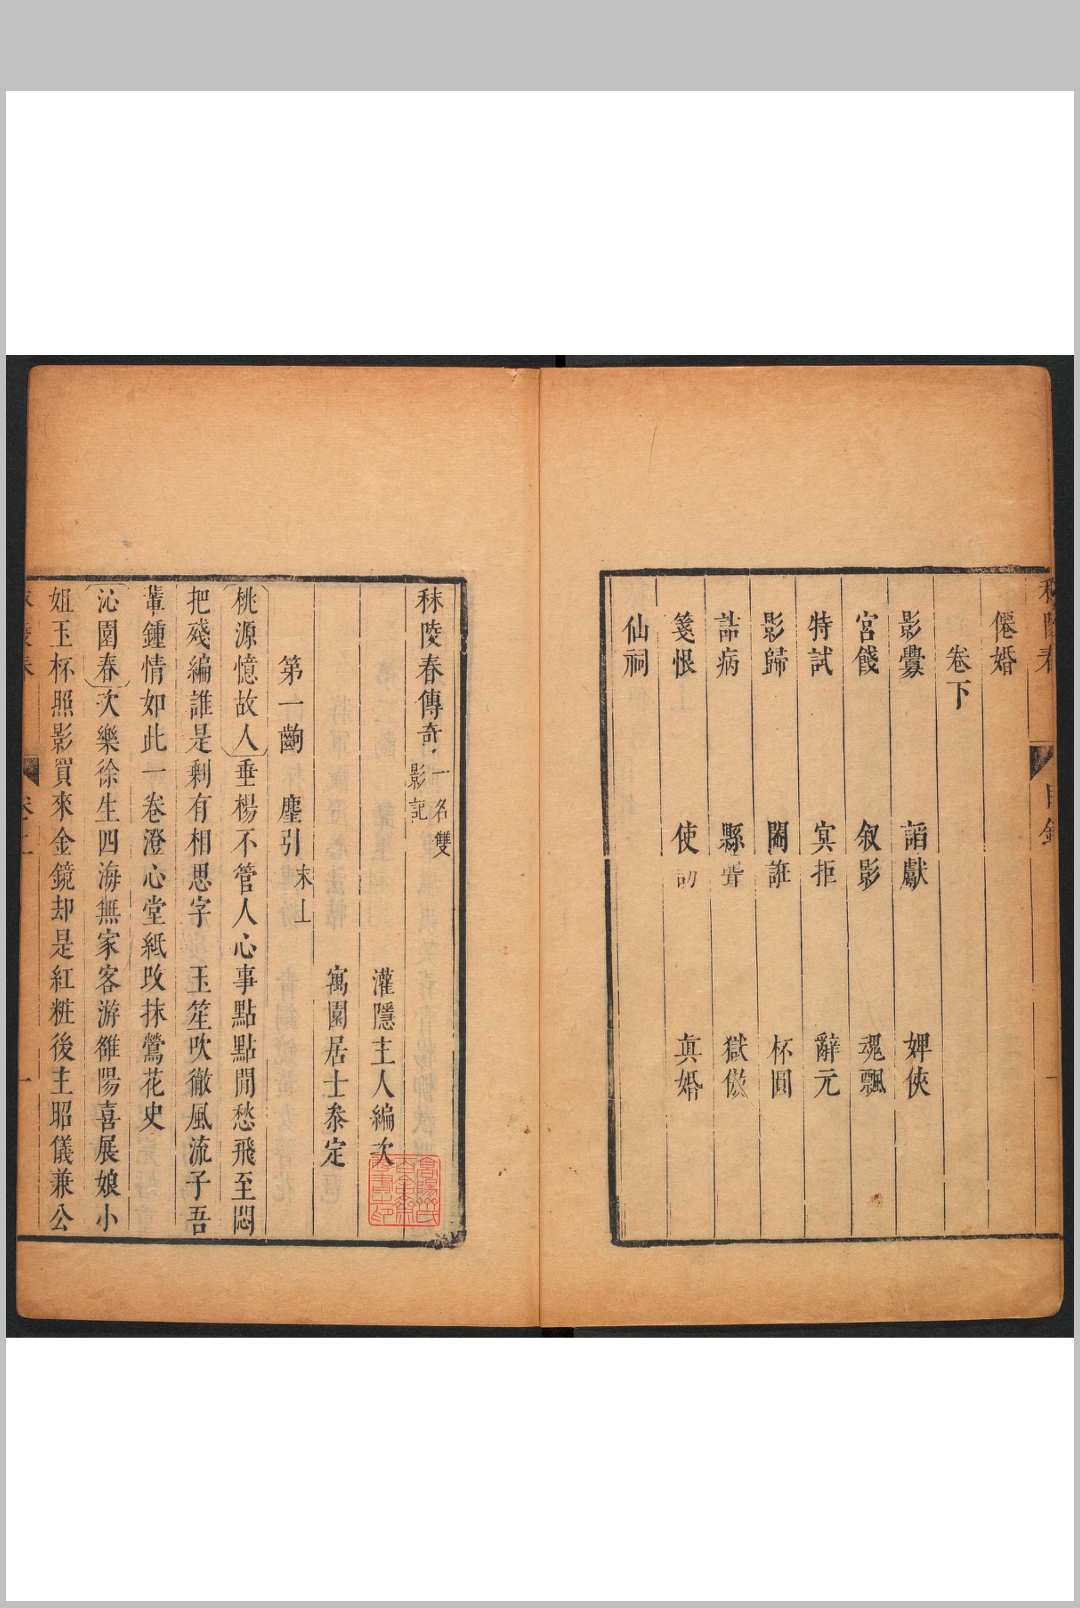 秣陵春 目錄
僊婚
卷下
影釁 謟獻 婢俠
宮餞 叙影 魂飄
特試 㝠拒 辭元
影歸 閙誑 杯圓
詰病 縣聳 獄傲
箋恨 使 真婚
仙祠
秣陵春傳奇 一名雙影記
灌隱主人編次
寓園居士叅定
第一齣 塵引 末上
桃源憶故人 垂楊不管人心事點點閒愁飛至悶
把殘編誰是剩有相思字 玉笙吹徹風流子吾
輩鍾情如此一卷澄心堂紙改抹鶯花史
沁園春 次樂徐生四海無家客游雒陽喜展娘小
姐玉杯照影買來金鏡却是紅粧後主昭儀兼公
秣陵春 卷上 一